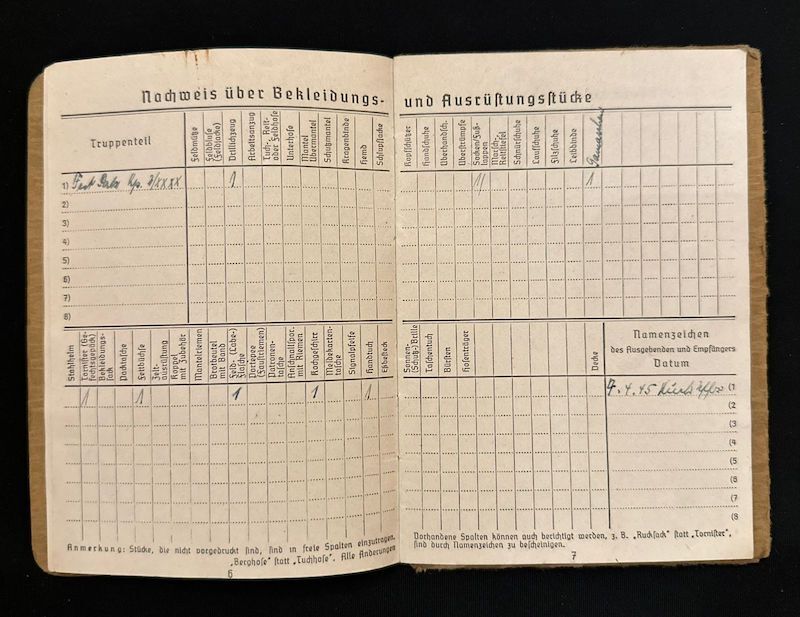 Nachweis über Bekleidungs-
Truppenteil
Feldmütze
Feldbluse (Feldjacke)
Drillichzeug
Arbeitsanzug
Tuch-, Reit- oder Feldhose
Unterhose
Mantel Übermantel
Schutzmantel
Kragenbinde
Hemd
Schlupfjacke
1) 1
2)
3)
4)
5)
6)
7)
8)
Stahlhelm
Tornister (Gefechtsgepäck)
Bekleidungssack
Packtasche
Fettbüchse
Zeltausrüstung
Koppel mit Zubehör
Mantelriemen
Brotbeutel mit Band
Feld- (Labe-) flasche
Portepee (Faustriemen)
Patronentasche
Anschnallspor. mit Riemen
Kochgeschirr
Meldekartentasche
Signalpfeife
Handtuch
Eßbesteck
1 1 1 1 1
Anmerkung: Stücke, die nicht vorgedruckt sind, sind in freie Spalten einzutragen.
„Berghose" statt „Tuchhose". Alle Änderungen
6
und Ausrüstungsstücke
Kopfschützer
Handschuhe
Überhandsch.
Überstrümpfe
Socken/Fußlappen
Marsch-, Reitstiefel
Schnürschuhe
Laufschuhe
Filzschuhe
Leibbinde
1/ 1
Sonnen- (Schutz-) Brille
Taschentuch
Bürsten
Hosenträger
Decke
Namenzeichen
des Ausgebenden und Empfängers
Datum
7. 4. 45 (1
(2
(3
(4
(5
(6
(7
(8
Vorhandene Spalten können auch berichtigt werden, z. B. „Rucksack" statt „Tornister",
sind durch Namenzeichen zu bescheinigen.
7